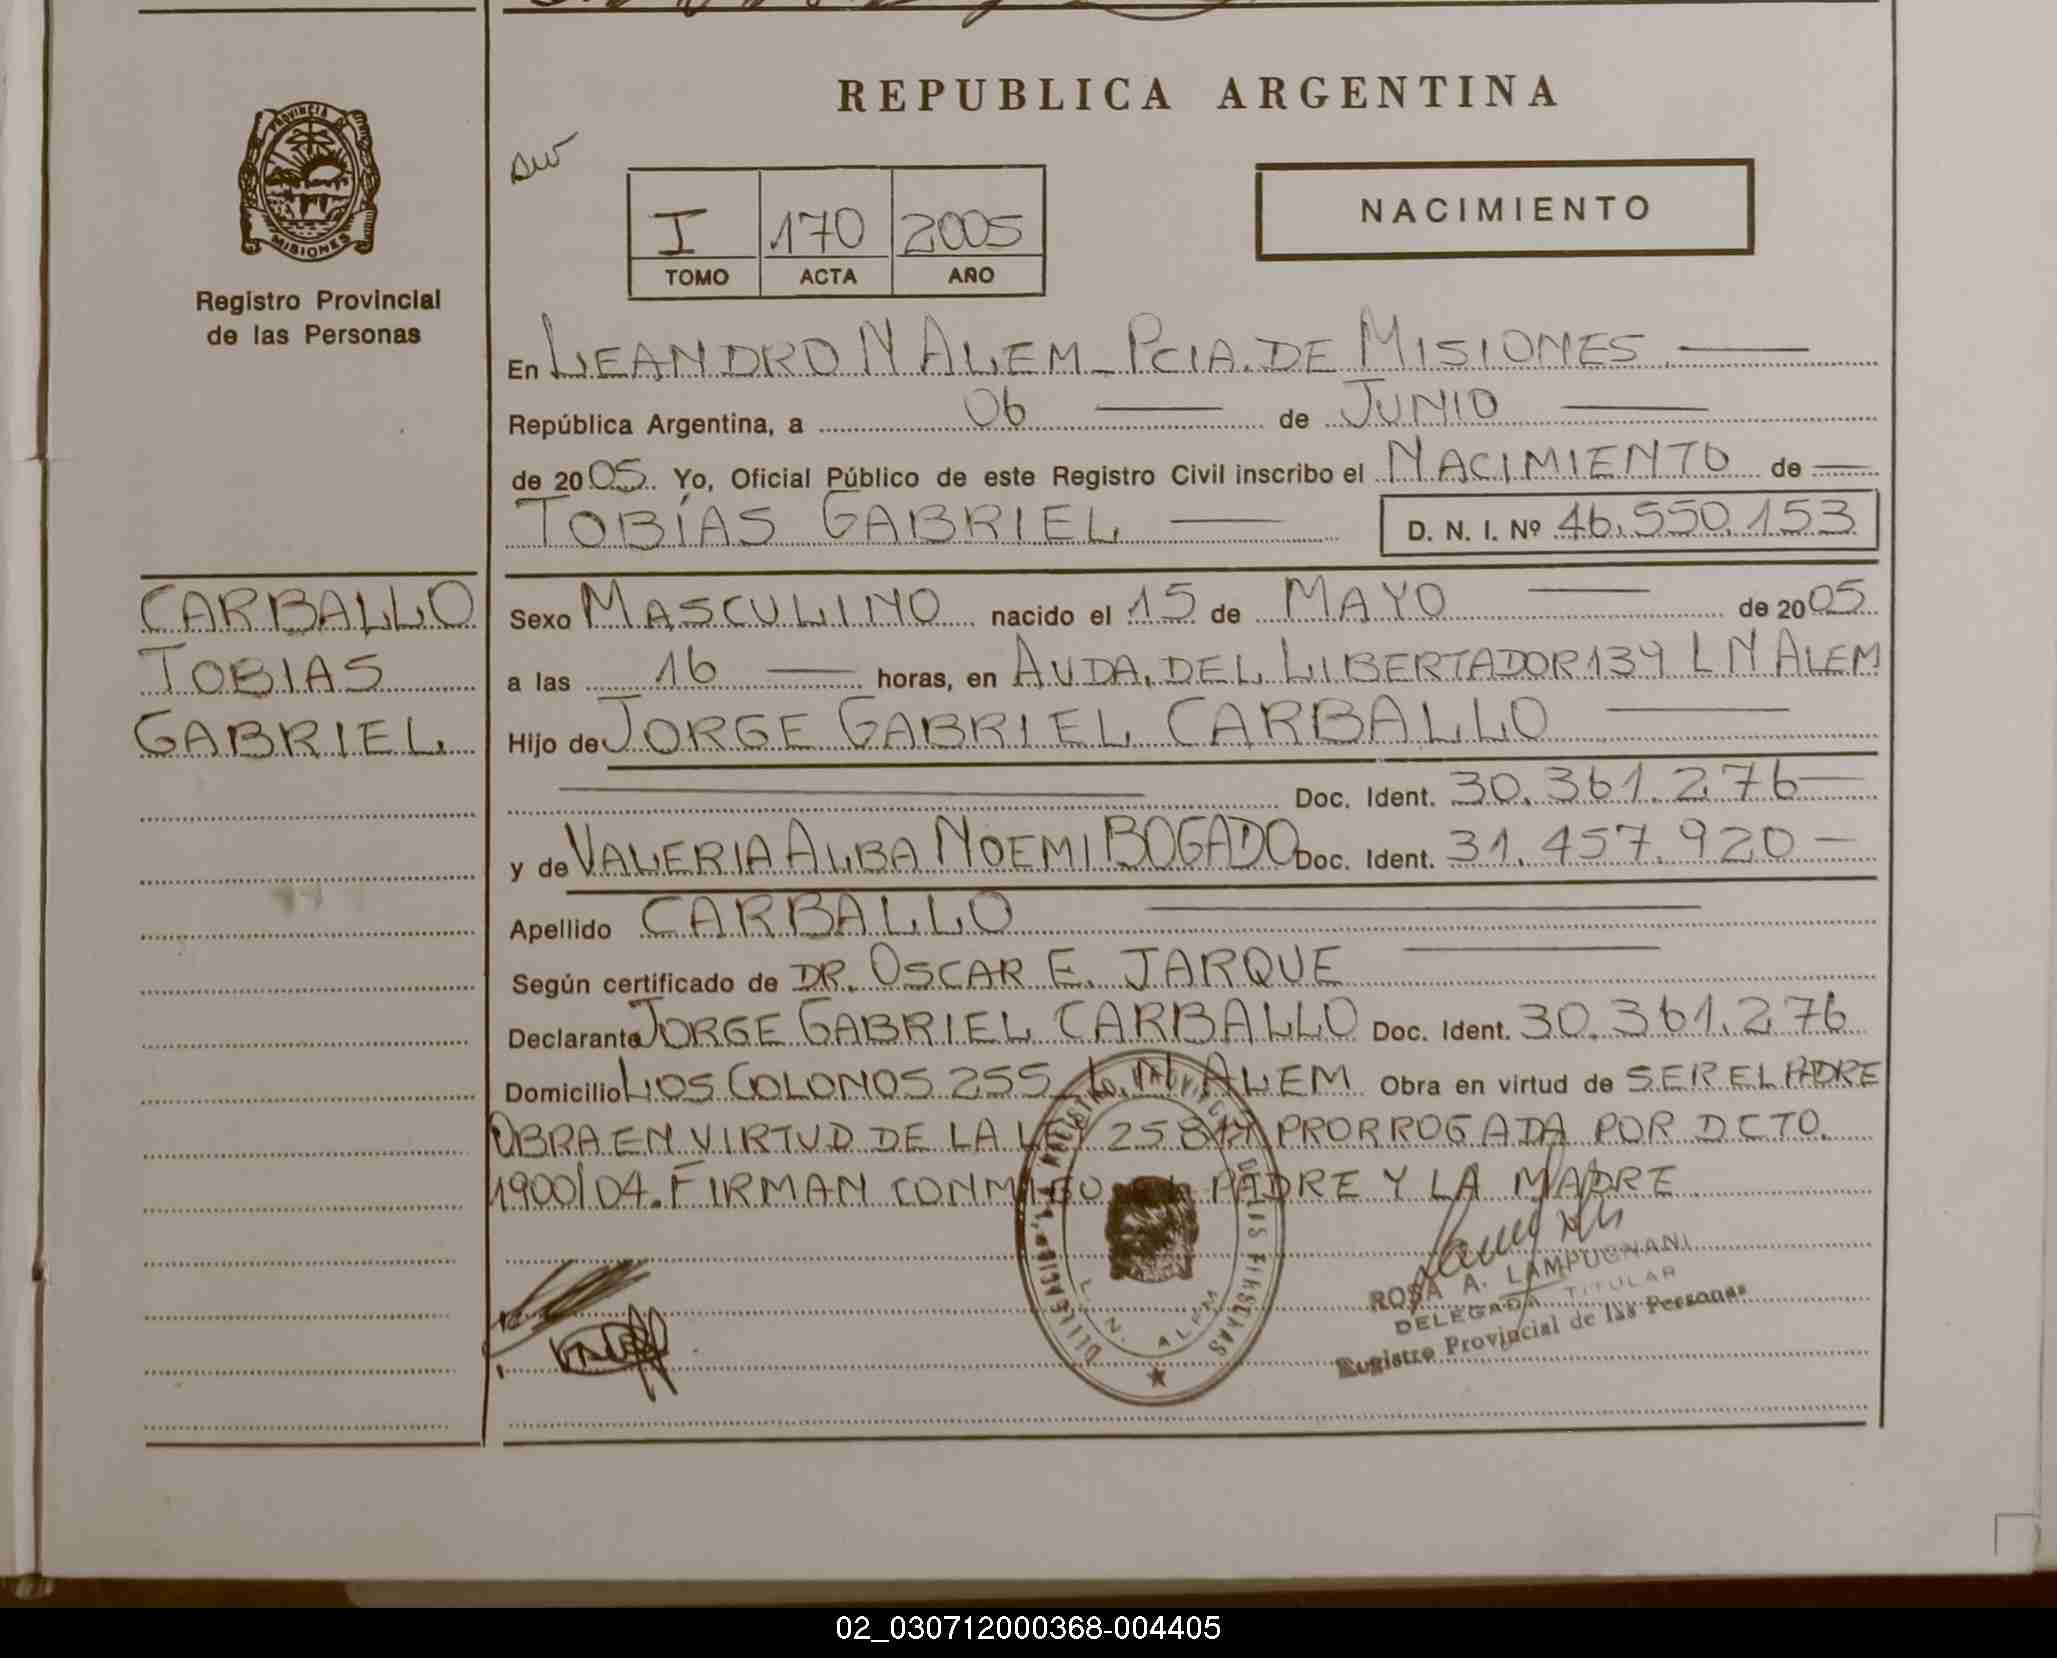 REPUBLICA ARGENTINA
PROVINCIA DE
MISIONES
Registro Provincial
de las Personas
I 170 2005
TOMO ACTA AÑO
NACIMIENTO
En LEANDRO N ALEM - PCIA. DE MISIONES
República Argentina, a 06 de JUNIO
de 2005. Yo, Oficial Público de este Registro Civil inscribo el NACIMIENTO de
TOBÍAS GABRIEL D. N. I. Nº 46.550.153
CARBALLO
TOBIAS
GABRIEL
Sexo MASCULINO nacido el 15 de MAYO de 2005
a las 16 horas, en AVDA. DEL LIBERTADOR 139 L N ALEM
Hijo de JORGE GABRIEL CARBALLO
Doc. Ident. 30.361.276
y de VALERIA ALBA NOEMI BOGADO Doc. Ident. 31.457.920
Apellido CARBALLO
Según certificado de DR. OSCAR E. JARQUE
Declarante JORGE GABRIEL CARBALLO Doc. Ident. 30.361.276
Domicilio LOS COLONOS 255 L. N. ALEM Obra en virtud de SER EL PADRE
OBRA EN VIRTUD DE LA LEY 25817 PRORROGADA POR DCTO.
1900/04. FIRMAN CONMIGO EL PADRE Y LA MADRE
L. N. ALEM
ROSA A. LAMPUGNANI
DELEGADA TITULAR
Registro Provincial de las Personas
02_030712000368-004405